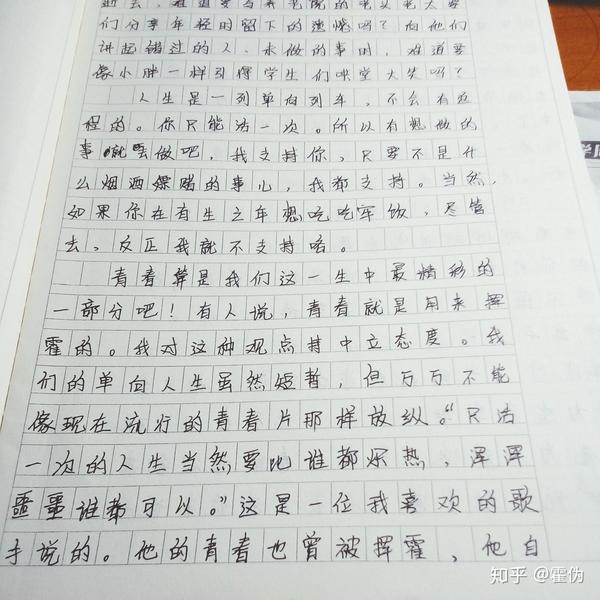 逝去，难道要当未老院的
们分享年轻时留下的遗憾吗？向他们
讲起错过的人、未做的事时，难道要
像小胖一样引得学生们哄堂大笑吗？
人生是一列单向列车，不会有返
程的。你只能活一次。所以有想做的
事就去做吧，我支持你，只要不是什
么烟酒嫖赌的事儿，我都支持。当然，
如果你在有生之年想吃吃牢饭，尽管
去，反正我就不支持咯。
青春算是我们这一生中最精彩的
一部分吧！有人说，青春就是用来挥
霍的。我对这种观点持中立态度。我
们的单向人生虽然短暂，但万万不能
像现在流行的青春片那样放纵。“只活
一次的人生当然要比谁都炙热，浑浑
噩噩谁都可以。”这是一位我喜欢的歌
手说的。他的青春也曾被挥霍，他自
知乎 @霍伪